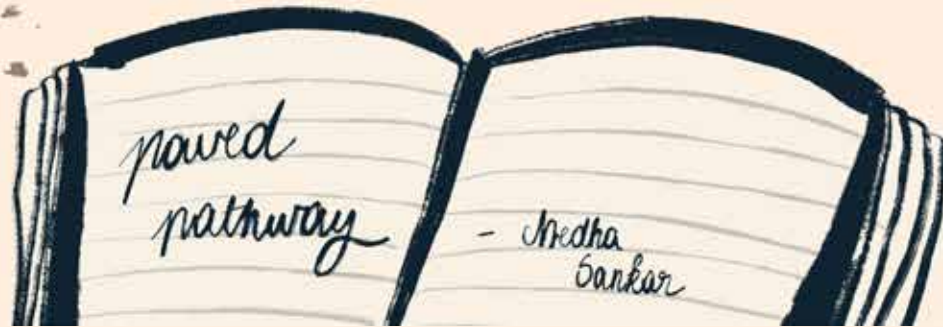 paved
pathway
- Medha
Sankar